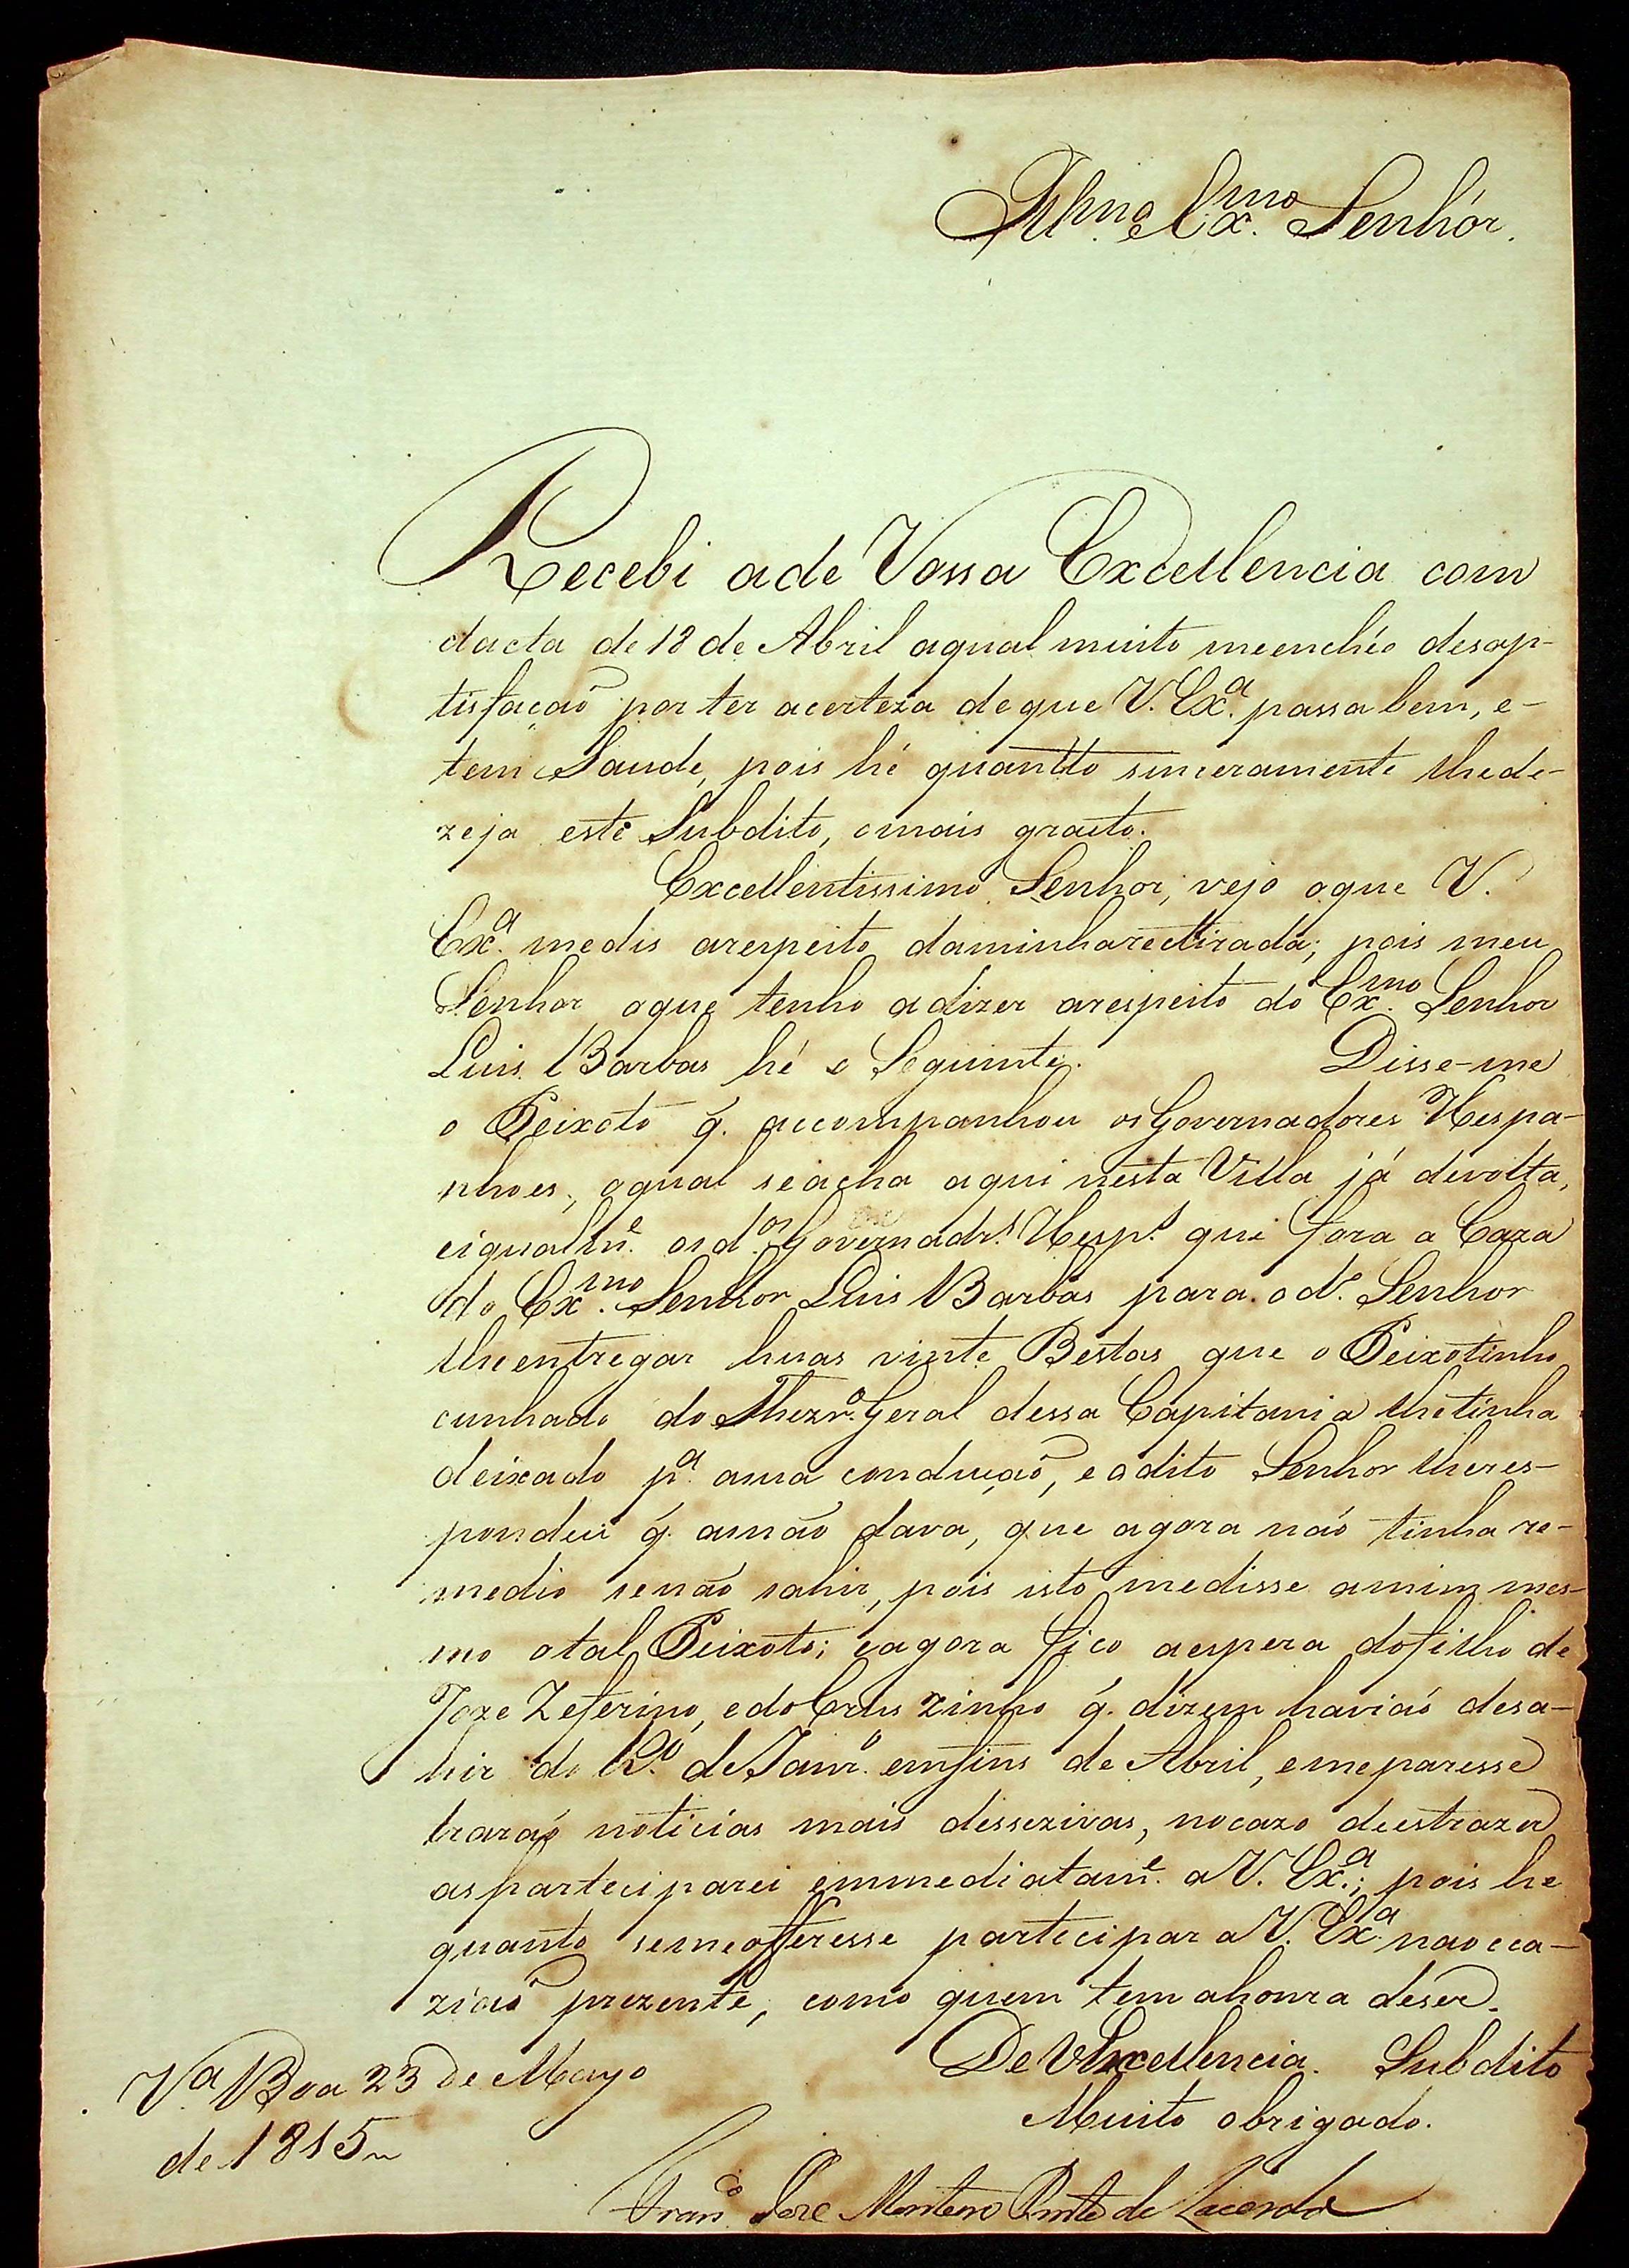 Illmo. e Exmo. Senhór.
Recebi a de Vossa Excellencia com
dacta de 18 de Abril aqual muito meenchéo desap-
tisfação por ter acerteza deque V. Exa. passa bem, e-
tem Saude, pois hé quantto sinceramente lhede-
zeja este Subdito, omais gracto.
Excellentissimo Senhor, vejo oque V.
Exa. medis arespeito daminharectirada; pois meu
Senhor oque tenho adizer arespeito do Exmo. Senhor
Luis Barbas hé o Seguinte. Disse-me
o Peixoto q. accompanhou osGovernadores Hespa-
nhoes, oqual seacha aqui nesta Villa já devolta,
eigualme. osdos. Governadrs. Hesps. que fora a Caza
do Exmo. Senhor Luis Barbas para o do. Senhor
lheentregar huas vinte Bestas que o Peixotinho
cunhado do Thezro. Geral dessa Capitania lhetinha
deixado pa. asua condução, eodito Senhor lheres-
pondeu q. asnão dava, que agora não tinha re-
medio senão sahir, pois isto medisse amim mes-
mo otal Peixoto; eagora fico aespera dofilho de
Joze Zeferino, edoCruszinho q. dizem havião desa-
hir do Ro. deJanro. emfins de Abril, emeparesse
trarão noticias mais dissezivas, nocazo deestrazer
asparteciparei emmediatame. aV. Exa.; pois he
quanto semeofferesse partecipar aV. Exa. naocca-
zião prezente, como quem tem ahonra deser.
De VExcellencia. Subdito
Muito obrigado.
Va. Boa 23 de Mayo
de 1815
Franco. Joze Montero Pinto de Lacerda